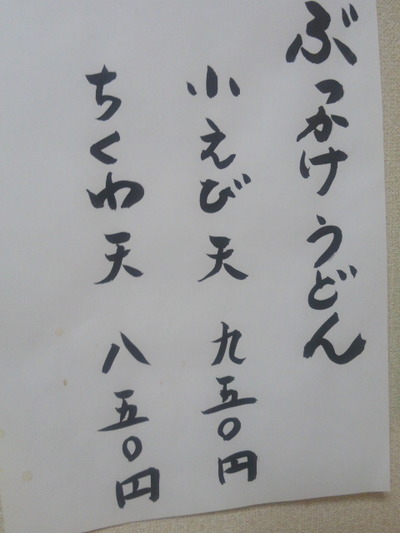 ぶっかけうどん
小えび天 九五〇円
ちくわ天 八五〇円